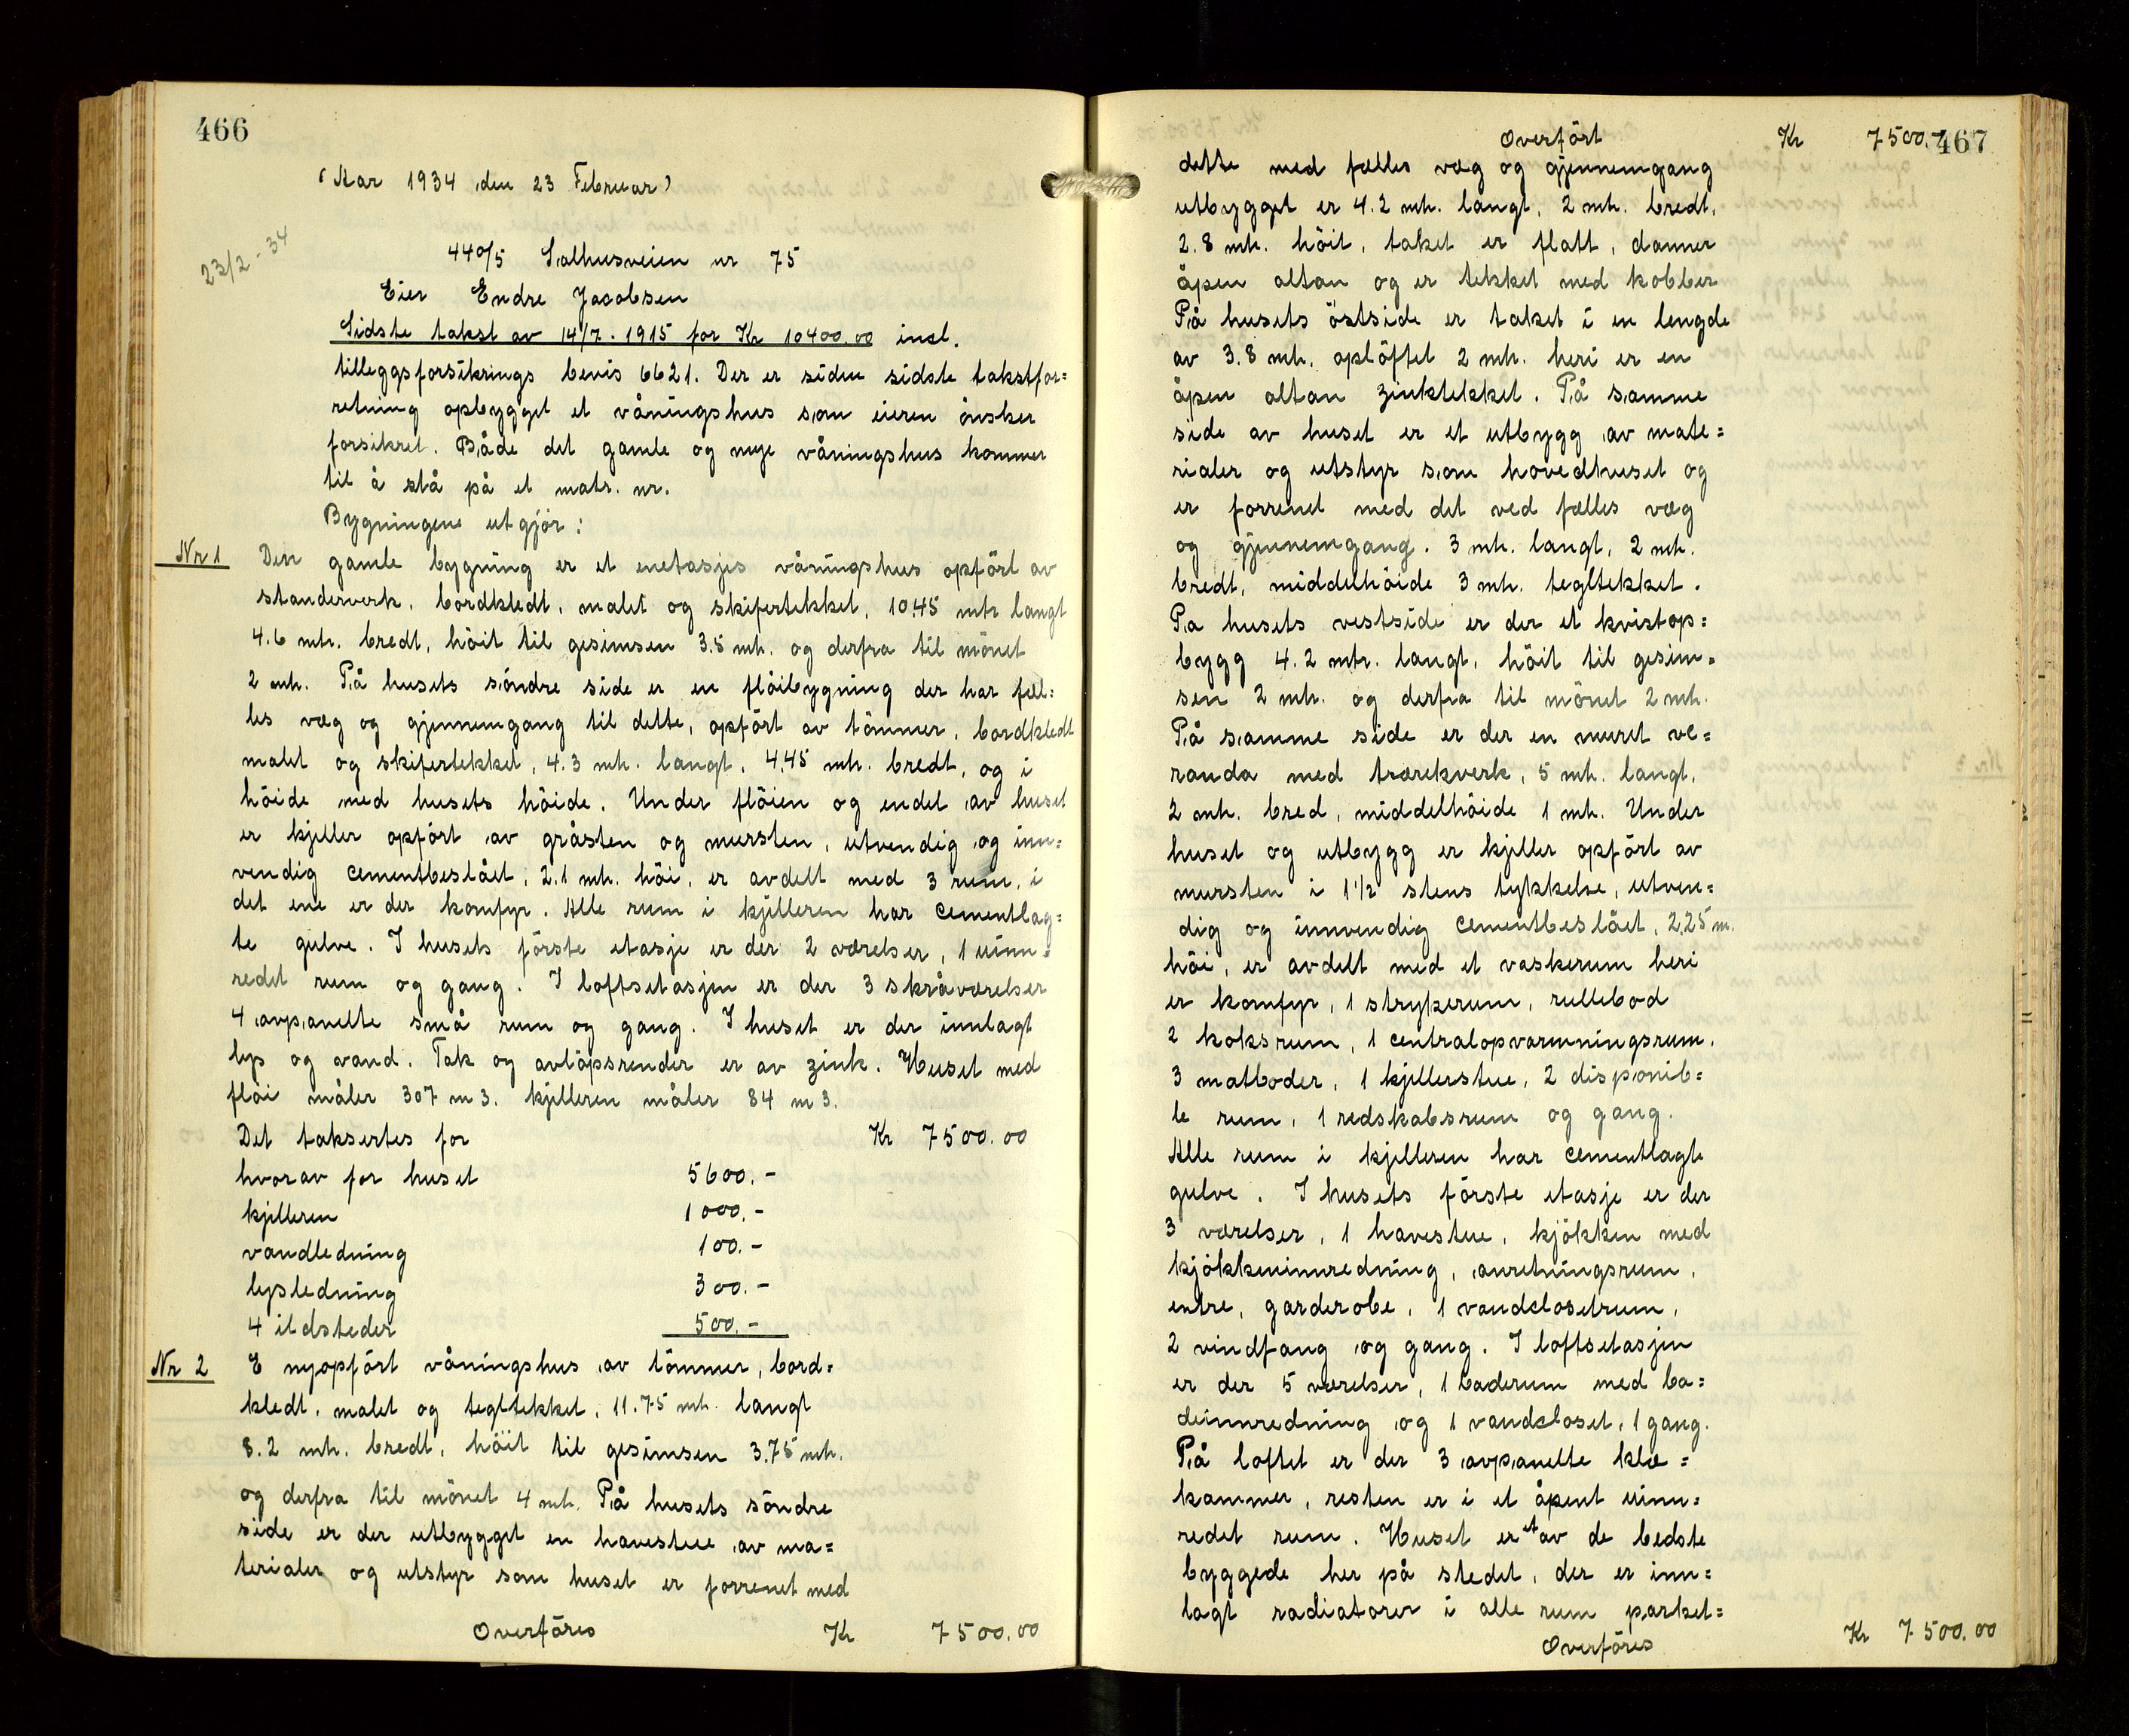 466
(Aar 1934 den 23 Februar)
23/2 - 34
440/5 Salhusveien nr 75
Eier Endre Jacobsen
Sidste takst av 14/7. 1915 for Kr 10400.00 incl.
tilleggsforsikrings bevis 6621. Der er siden sidste takstfor=
retning opbygget et våningshus som eieren önsker
forsikret. Både det gamle og nye våningshus kommer
til å stå på et matr. nr.
Bygningene utgjör:
Nr 1 Den gamle bygning er et enetasjes våningshus opfört av
standerverk, bordkledt, malet og skifertekket, 10.45 mtr langt
4.6 mtr. bredt, höit til gesimsen 3.5 mtr. og derfra til mönet
2 mtr. På husets söndre side er en flöibygning der har fæl=
les væg og gjennemgang til dette, opfört av tömmer, bordkledt
malet og skifertekket, 4.3 mtr. langt, 4,45 mtr. bredt, og i
höide med husets höide. Under flöien og endel av huset
er kjeller opfört av gråsten og mursten, utvendig og inn=
vendig cementbeslået, 2.1 mtr. höi, er avdelt med 3 rum, i
det ene er der komfyr. Alle rum i kjelleren har cementlag=
te gulve. I husets förste etasje er der 2 værelser, 1 uinn=
redet rum og gang. I loftsetasjen er der 3 skråværelser
4 avpanelte små rum og gang. I huset er der innlagt
lys og vand. Tak og avlöpsrender er av zink. Huset med
flöi måler 307 m3. kjelleren måler 84 m3.
Det taksertes for Kr 7500.00
hvorav for huset 5600.-
kjelleren 1000.-
vandledning 100.-
lysledning 300.-
4 ildsteder 500.-
Nr 2 E nyopfört våningshus av tömmer, bord=
kledt, malet og tegltekket, 11.75 mtr. langt
8.2 mtr. bredt, höit til gesimsen 3.75 mtr.
og derfra til mönet 4 mtr. På husets söndre
side er der utbygget en havestue av ma=
terialer og utstyr som huset er forrenet med
Overföres Kr 7500.00
467
Overfört Kr 7500.-
dette med fælles væg og gjennemgang
utbygget er 4.2 mtr. langt, 2 mtr. bredt,
2.8 mtr. höit, taket er flatt, danner
åpen altan og er tekket med kobber
På husets östside er taket i en lengde
av 3.8 mtr. oplöftet 2 mtr. heri er en
åpen altan zinktekket. På samme
side av huset er et utbygg av mate=
rialer og utstyr som hovedhuset og
er forrenet med det ved fælles væg
og gjennemgang. 3 mtr. langt, 2 mtr.
bredt, middelhöide 3 mtr. tegltekket.
Pa husets vestside er der et kvistop=
bygg 4.2 mtr. langt, höit til gesim=
sen 2 mtr. og derfra til mönet 2 mtr.
På samme side er der en muret ve=
randa med trærekverk, 5 mtr. langt,
2 mtr. bred, middelhöide 1 mtr. Under
huset og utbygg er kjeller opfört av
mursten i 1 1/2 stens tykkelse, utven=
dig og innvendig cementbeslået, 2,25 m.
höi, er avdelt med et vaskerum heri
er komfyr, 1 strykerum, rullebod
2 koksrum, 1 centralopvarmningsrum,
3 matboder, 1 kjellerstue, 2 disponib=
le rum, 1 redskabsrum og gang.
Alle rum i kjelleren har cementlagte
gulve. I husets förste etasje er der
3 værelser, 1 havestue, kjökken med
kjökkeninnredning, anretningsrum,
entre, garderobe, 1 vandclosetrum,
2 vindfang og gang. I loftsetasjen
er der 5 værelser, 1 baderum med ba=
deinnredning og 1 vandcloset, 1 gang.
På loftet er der 3 avpanelte klæ=
kammer, resten er i et åpent uinn=
redet rum. Huset er et av de bedste
byggede her på stedet, der er inn=
lagt radiatorer i alle rum parket=
Overföres Kr 7500.00